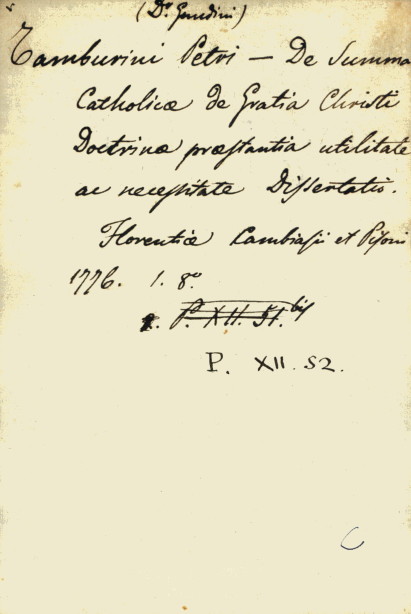 (Dr. Gandini)
Tamburini Petri — De Summa
Catholicæ de Gratia Christi
Doctrinæ præstantia utilitate
ac necessitate Dissertatio.
Florentiæ Cambiasii et
1776. 1. 8.º
P. XII. 51. bis
P. XII. 52.